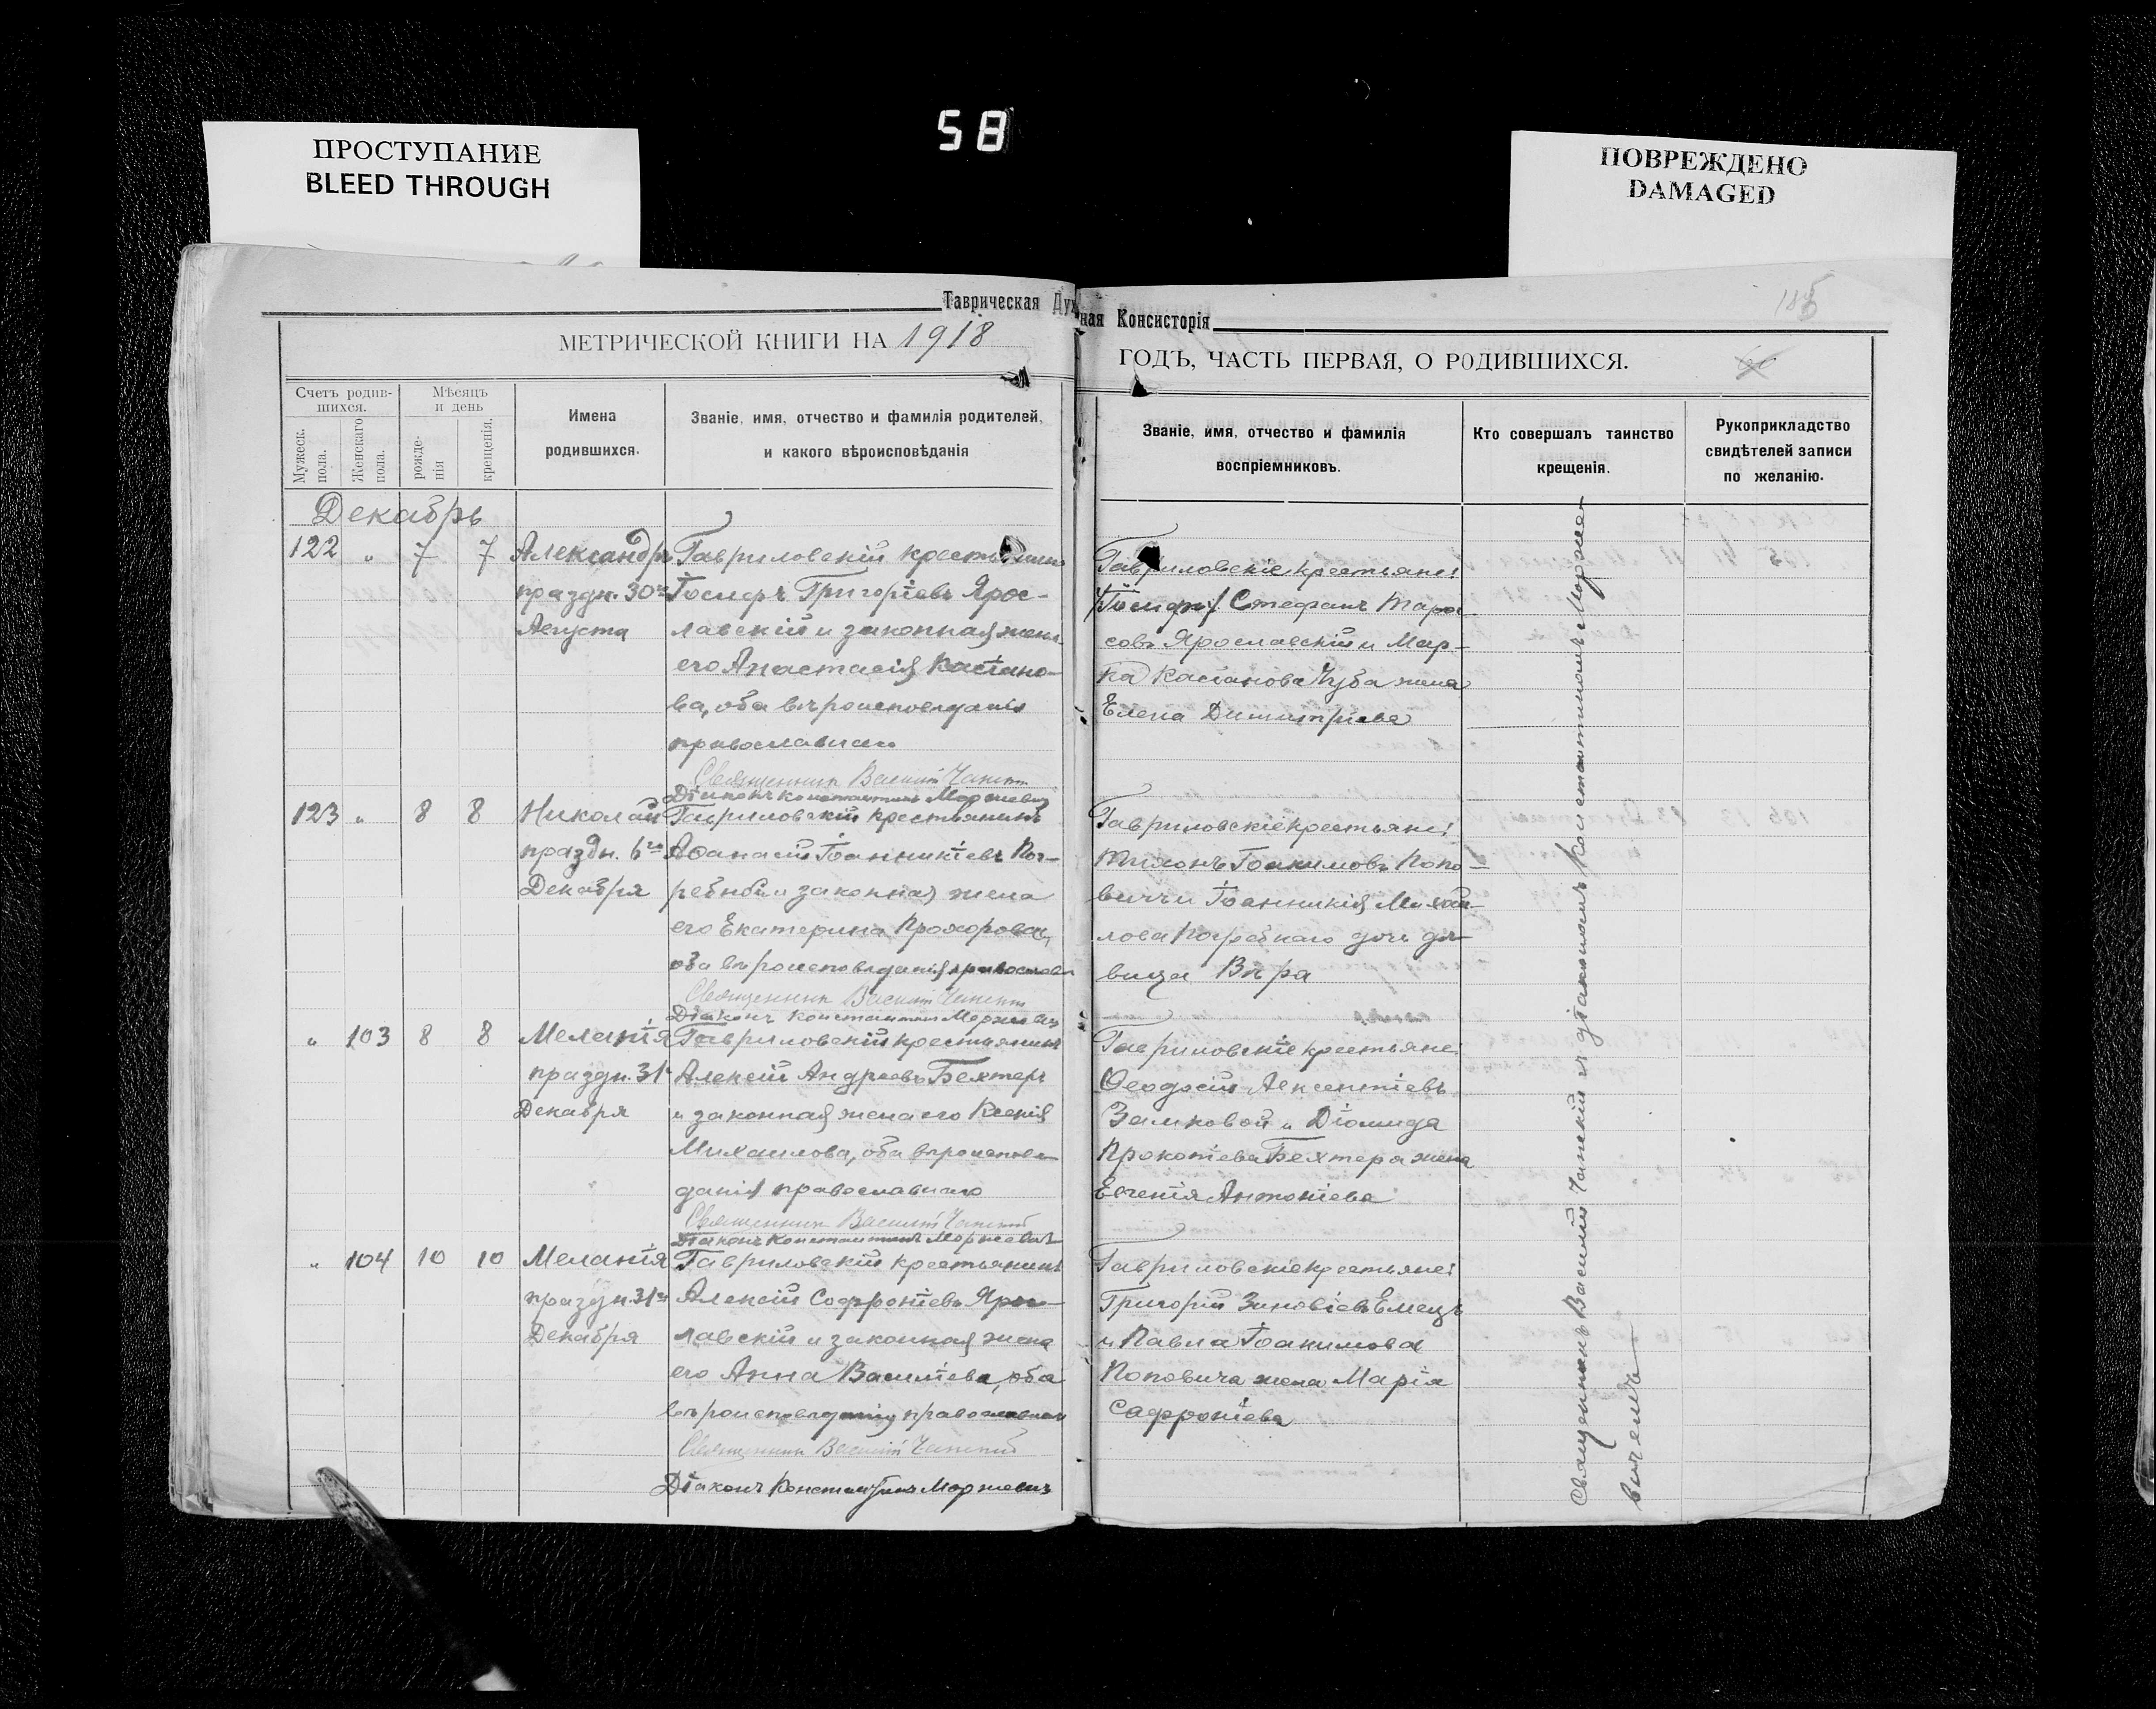 58
ПРОСТУПАНИЕ
BLEED THROUGH
ПОВРЕЖДЕНО
DAMAGED
Таврическая Дух
ная Консисторія
185
МЕТРИЧЕСКОЙ КНИГИ НА 1918
ГОДЪ, ЧАСТЬ ПЕРВАЯ, О РОДИВШИХСЯ.
Счетъ родив-
шихся.
Мужеск.
пола.
Женскаго
пола.
Мѣсяцъ
и день
рожде-
нія
крещенія.
Имена
родившихся.
Званіе, имя, отчество и фамилія родителей,
и какого вѣроисповѣданія
Званіе, имя, отчество и фамилія
воспріемниковъ.
Кто совершалъ таинство
крещенія.
Рукоприкладство
свидѣтелей записи
по желанію.
Декабрь
122 " 7 7
Александръ
праздн. 30го
Августа
Гавриловскій крестьянинъ
Іосифъ Григоріевъ Ярос-
лавскій и законная жена
его Анастасія Касіано-
ва, оба вѣроисповѣданія
православнаго
Священникъ Василій
Діаконъ Константинъ Моржевичъ
Гавриловскіе крестьяне:
/Іосифъ/ Стефанъ Тара
совъ Ярославскій и Мар-
ка Касіанова Чуба жена
Елена Димитріева
123 " 8 8
Николай
праздн. 6го
Декабря
Гавриловскій крестьянинъ
Аѳанасій Іоанникіевъ Пог-
ребный и законная жена
его Екатерина Прохорова,
оба вѣроисповѣданія православн
Священникъ Василій
Діаконъ Константинъ Моржевичъ
Гавриловскіе крестьяне:
Тихонъ Іоакимовъ Попо-
вичъ и Іоанникія Михай-
лова Погребнаго дочь дѣ-
вица Вѣра
" 103 8 8
Меланія
праздн. 31
Декабря
Гавриловскій крестьянинъ
Алексій Андреевъ Бехтеръ
и законная жена его Ксенія
Михаилова, оба вѣроисповѣ
данія православнаго
Священникъ Василій
Діаконъ Константинъ Моржевичъ
Гавриловскіе крестьяне:
Ѳеодосій Авксентіевъ
Замковой и Діомида
Прокопіева Бехтера жена
Евгенія Антоніева
" 104 10 10
Меланія
праздн. 31го
Декабря
Гавриловскій крестьянинъ
Алексій Софроніевъ Ярос-
лавскій и законная жена
его Анна Василіева, оба
вѣроисповѣданія православнаго
Священникъ Василій
Діаконъ Константинъ Моржевичъ
Гавриловскіе крестьяне:
Григорій Зиновіевъ Емецъ
и Павла Іоакимова
Поповича жена Марія
Сафроніева
Священникъ Василій Чапскій и діакономъ Константиномъ Морже-
вичемъ